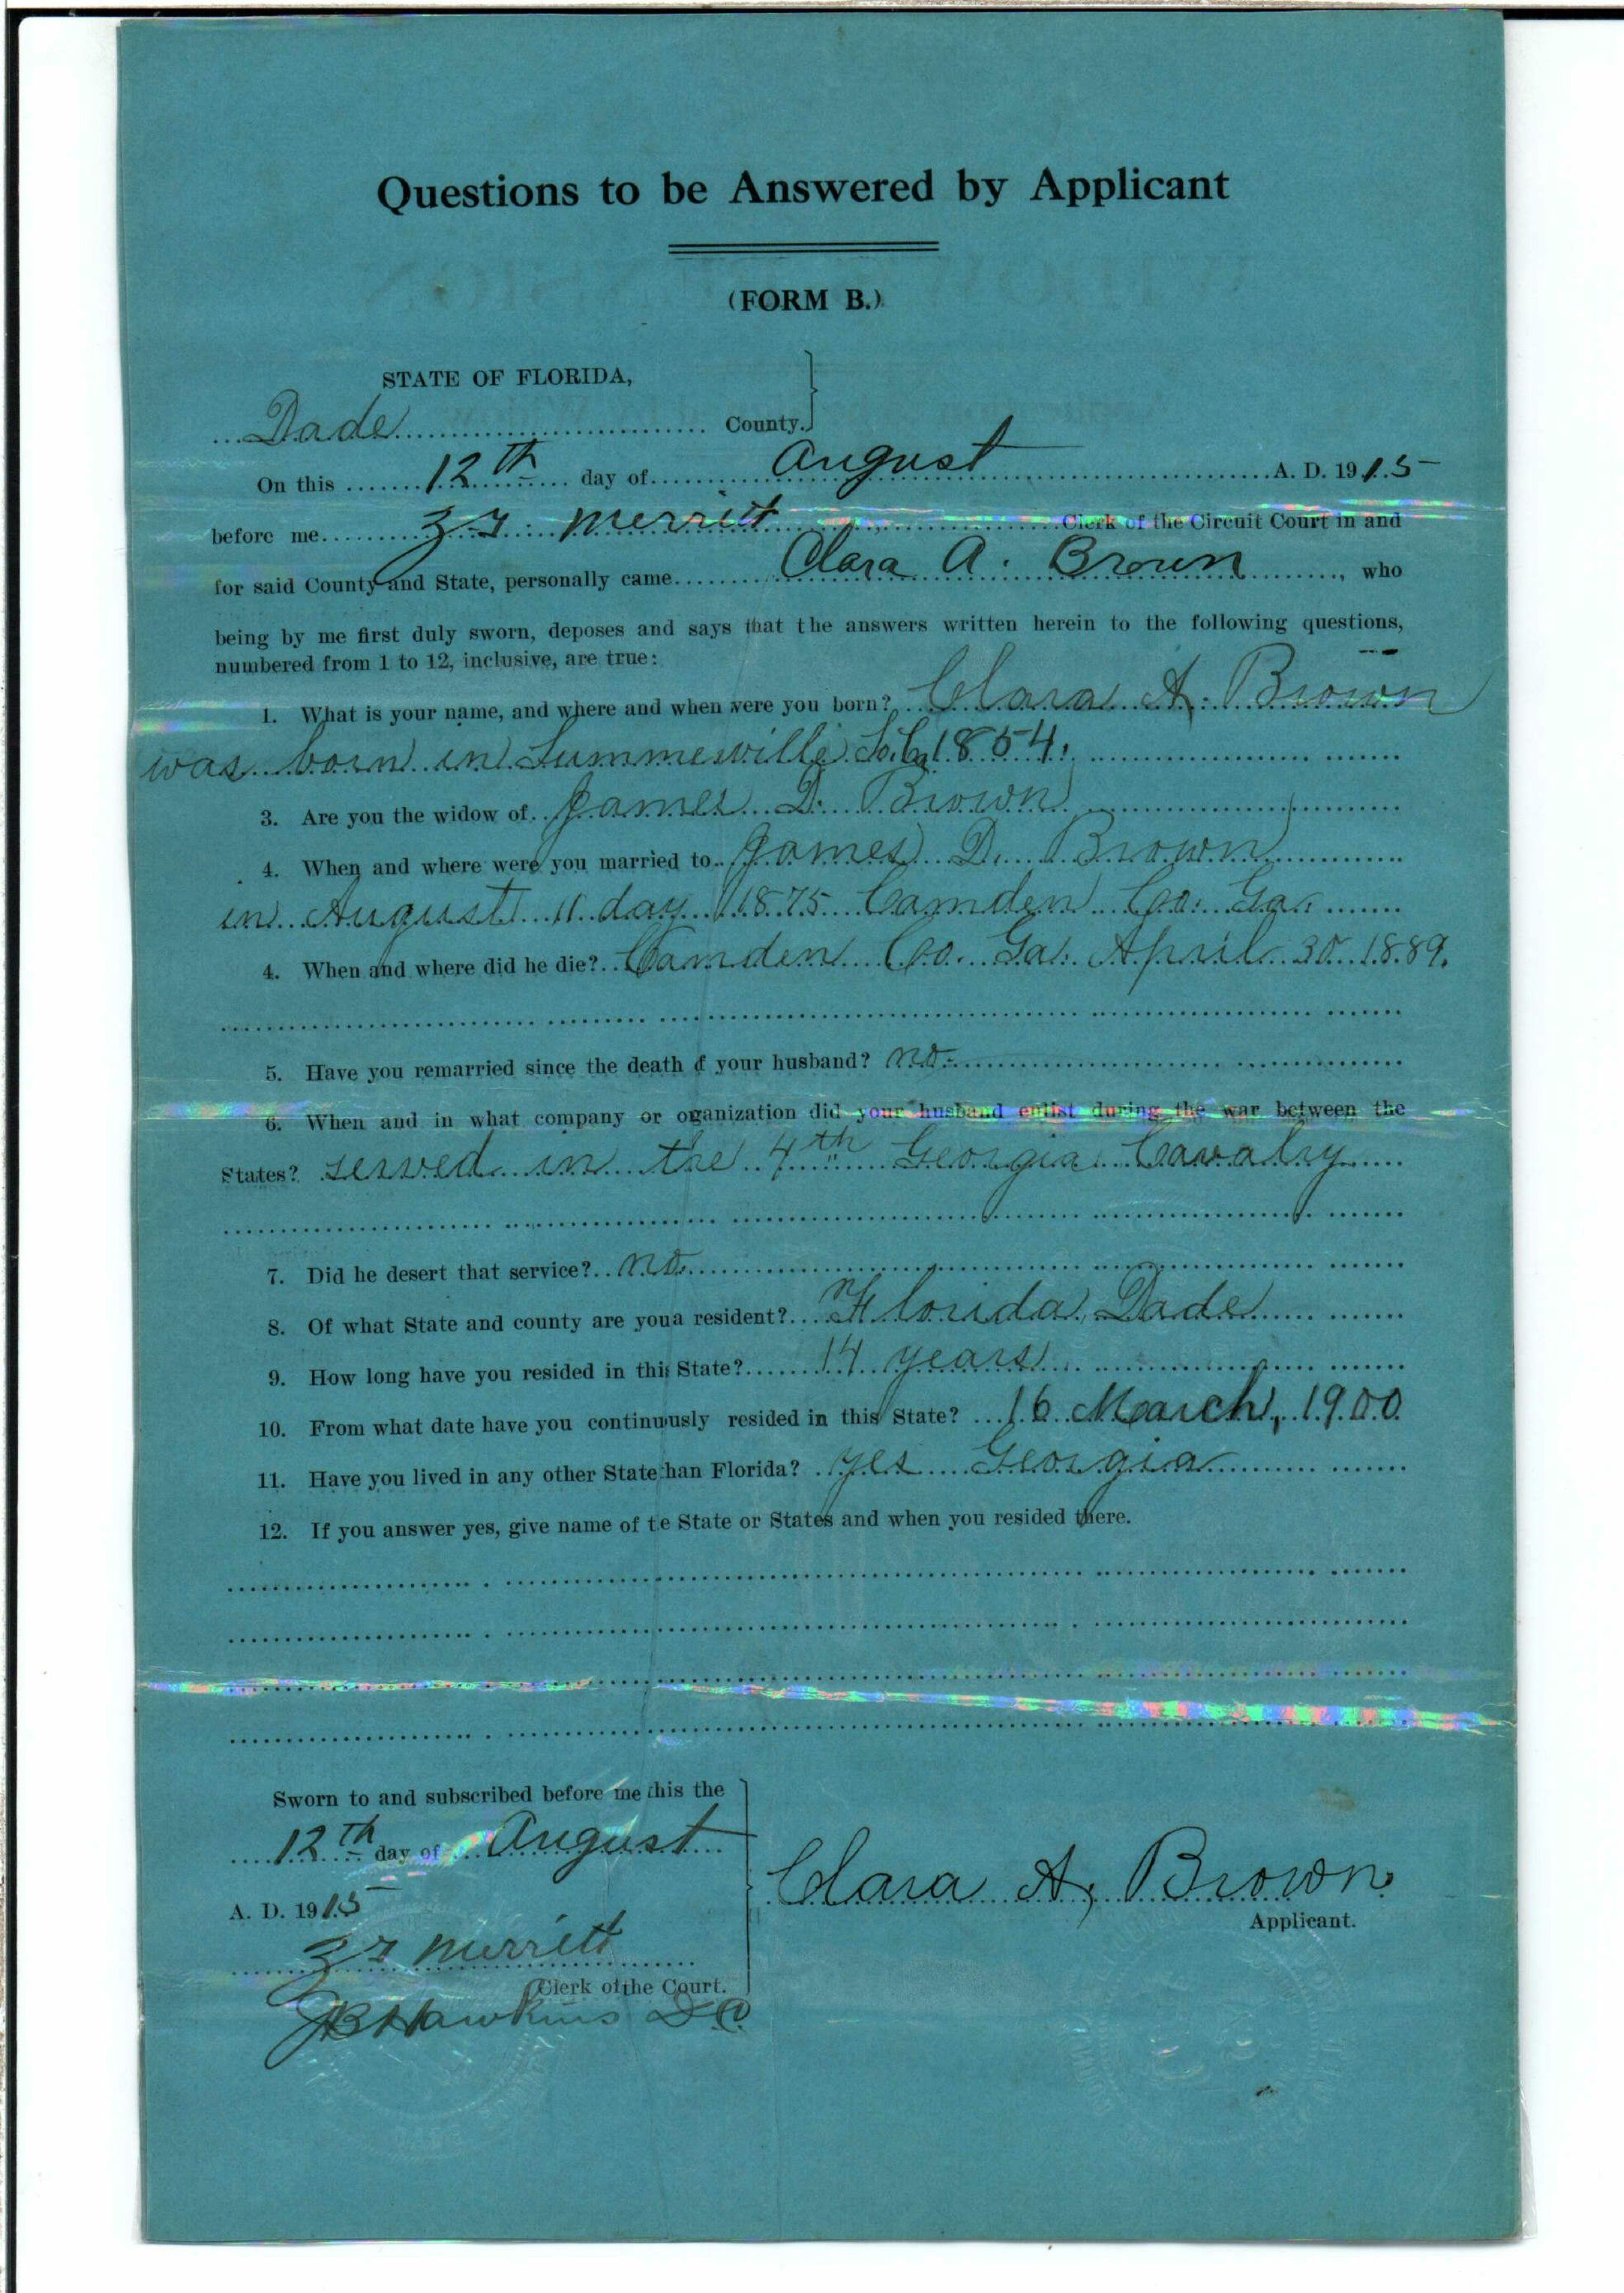 Questions to be Answered by Applicant
(FORM B.)
STATE OF FLORIDA,
Dade County.
On this 12th day of August A. D. 1915
before me Z T Merritt Clerk of the Circuit Court in and
for said County and State, personally came Clara A. Brown, who
being by me first duly sworn, deposes and says that the answers written herein to the following questions,
numbered from 1 to 12, inclusive, are true:
1. What is your name, and where and when were you born? Clara A. Brown
was born in Summerville So. Ca 1854.
3. Are you the widow of James D. Brown
4. When and where were you married to James D. Brown
in August 11 day 1875 Camden Co. Ga.
4. When and where did he die? Camden Co. Ga. April 30 1889.
5. Have you remarried since the death f your husband? no.
6. When and in what company or oganization did your husband enlist during the war between the
States? served in the 4th Georgia Cavalry
7. Did he desert that service? no.
8. Of what State and county are you a resident? Florida, Dade
9. How long have you resided in this State? 14 years
10. From what date have you continuously resided in this State? 16 March, 1900
11. Have you lived in any other State than Florida? yes Georgia
12. If you answer yes, give name of te State or States and when you resided there.
Sworn to and subscribed before me this the
12th day of August
A. D. 1915
Z T Merritt
Clerk of the Court.
JB Hawkins D C
Clara A. Brown
Applicant.